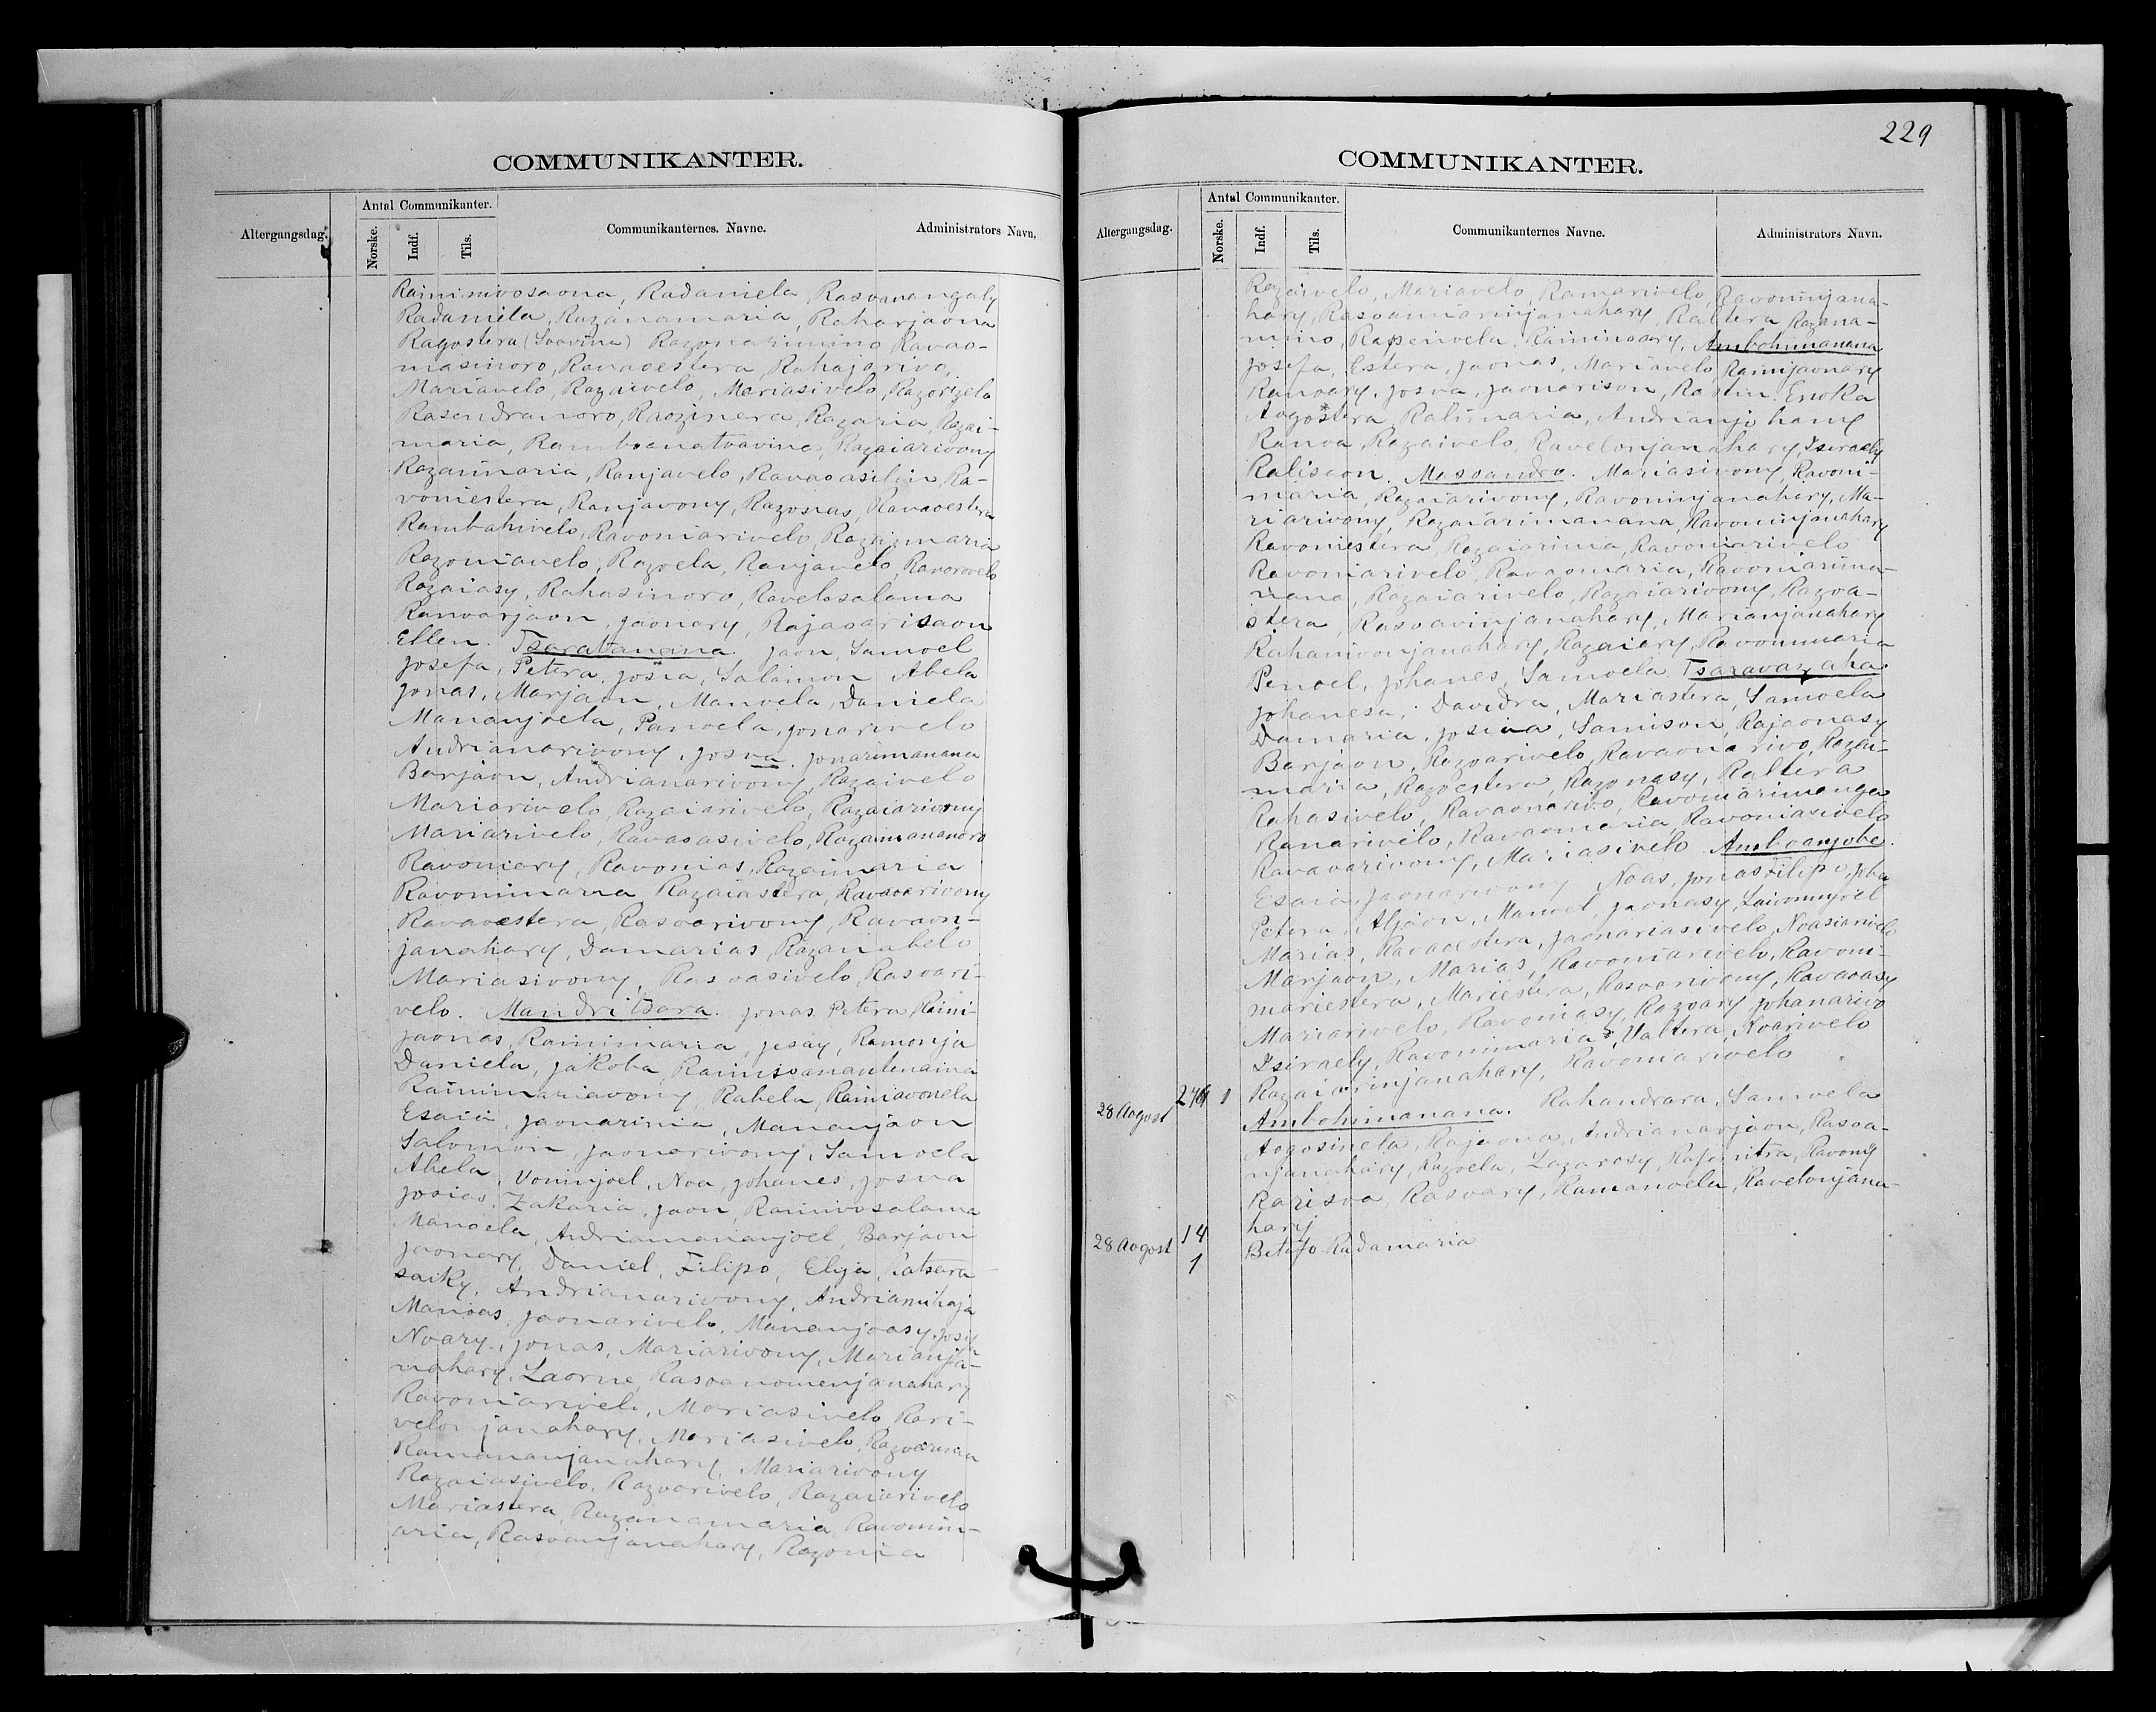 COMMUNIKANTER.
Altergangsdag.
Antal Communikanter.
Norske.
Indf.
Tils.
Communikanternes. Navne.
Administrators Navn.
Rainimivosaona, Radaniela Rasoanangaly
Radaniela, Razanamaria, Raharjaona
Ragostera (Soavina) Razonarimino Ravao-
masinoro, Ravaoestera Rahajarivo,
Mariavelo, Razaivelo, Mariasivelo, Razorizela
Rasendranoro, Raozinera, Razaria, Razai-
maria, Ramboanatoavina, Razaiarivony
Razaimaria, Ranjavelo, Ravaoasilin, Ra-
voniestera, Ranjavony, Razosias, Ravaoestera
Rambahivelo, Ravoniarivelo, Razaizmaria
Razomavelo, Razoela, Ranjavelo, Ravorovelo
Razaiasy, Rahasinoro, Ravelosalama
Ranoarjaon, Jaonary, Rajaoarisaon
Ellen. Tsaratanana. Jaon, Samoel
Josefa, Petera, Josia, Salamon Abela
Jonas, Marjaon, Manoela, Daniela
Mananjoela, Panoela, Jonarivelo
Andrianarivony, Josva. Jonarimanana
Barjaon, Andrianarivony, Razaivelo
Mariarivelo, Razaiarivelo, Razaiarivony
Mariarivelo, Ravaoasivelo, Razaimananoro
Ravoniary, Ravonias, Razaimaria
Ravonimaria Razaiastera, Ravaoarivony
Ravaoestera, Rasoarivony, Ravaon-
janahary, Damarias, Razanabelo
Mariasivony, Rasoasivelo, Rasoari-
velo. Mandritsara. Jonas Petera Raini-
jaonas, Rainimaria, Jesay, Ramonja
Daniela, Jakoba, Rainisoanantenaina
Rainimariavony, Rabela, Rainiavonela
Esaia, Jaonarinia, Mananjaon
Salomon, Jaonarivony, Samoela
Abela, Voninjoel, Noa, Johanes, Josva
Josias, Zakaria, Jaon, Rainivosalama
Manoela, Andriamananjoel, Barjaon
Jaonary, Daniel, Filipo, Elija, Ratsara-
saiky, Andrianarivony, Andriamihaja
Manoas, Jaonarivelo, Mananjoasy, Josefa
Noary, Jonas, Mariarivony, Marianja-
nahary, Laorne, Rasoanomenjanahary
Ravoniarivelo, Mariasivelo Rari-
velonjanahary, Mariasivelo, Razoarinia
Ramananjanahary, Mariarivony
Razaiasivelo, Razoarivelo, Razaiarivelo
Mariastera, Razanamaria, Ravonim-
aria, Rasoanjanahary, Razonia
229
COMMUNIKANTER.
Altergangsdag.
Antal Communikanter.
Norske.
Indf.
Tils.
Communikanternes Navne.
Administrators Navn.
Razaivelo, Mariavelo, Ramarivelo, Ravoninjana-
hary, Rasoamiarinjanahary, Raltera, Razana-
mino, Rapenoela, Raininoary, Ambohimanana
Josefa, Estera, Jaonas, Mariavelo Rainijaonary
Ranoary, Josva, Jaonarison, Rostin. Enoka
Aogostera, Ralinaria, Andrianjohany
Ranoa, Razaivelo, Ravelonjanahary, Isiraely
Ralisaon. Masoandro. Mariasivony, Ravoni-
maria, Razaiarivony, Ravoninjanahary, Ma-
riarivony, Razaiarimanana, Ravoninjanahary
Ravoniestera, Razaiarinia, Ravoniarivelo
Ravoniarivelo, Ravaomaria, Ravoniarima-
nana, Razaiarivelo, Razaiarivony, Razoa-
stera, Rasoavinjanahary, Marianjanahary
Rahanivonjanahary, Razaiary, Ravonimaria
Penoel, Johanes, Samoela. Tsaravazaha
Johanesa, Davidra, Mariastera, Samoela
Damaria, Josiva, Samison, Rajaonasy
Barjaon, Razoarivelo, Ravaonarivo, Razai-
maria, Razoestera, Razonasy, Raltera
Rahasivelo, Ravaonarivo, Ravoniarimanga
Ranarivelo, Ravaomaria, Ravoniasivelo
Ravaoarivony, Mariasivelo Amboanjobe.
Esaia, Jaonarivony Noas, Jonas Filipo, Joha
Petera, Aljaon, Manoel, Jaonasy, Laivonnjoel
Marias, Ravaoestera, Jaonariasivelo, Noasiarivelo
Marjaon, Marias, Ravoniarivelo, Ravoni-
mariestera, Mariestera, Rasoarivony, Ravaoasy
Mariarivelo, Ravoniasy, Razoary, Johanarivo
Isiraely, Ravonimarias, Valtera, Noarivelo
Razaiarinjanahary, Ravoniarivelo
28 Aogost
Ambohimanana. Rahandrara, Samoela
Aogosinela, Rajaona, Andrianarjaon, Rasoa-
njanahary, Razoela, Lazarosy, Rafonitra, Ravony
Rarisoa, Rasoary, Ramanoela, Ravelonjana-
hary
28 Aogost 14 Betafo. Radamaria
1